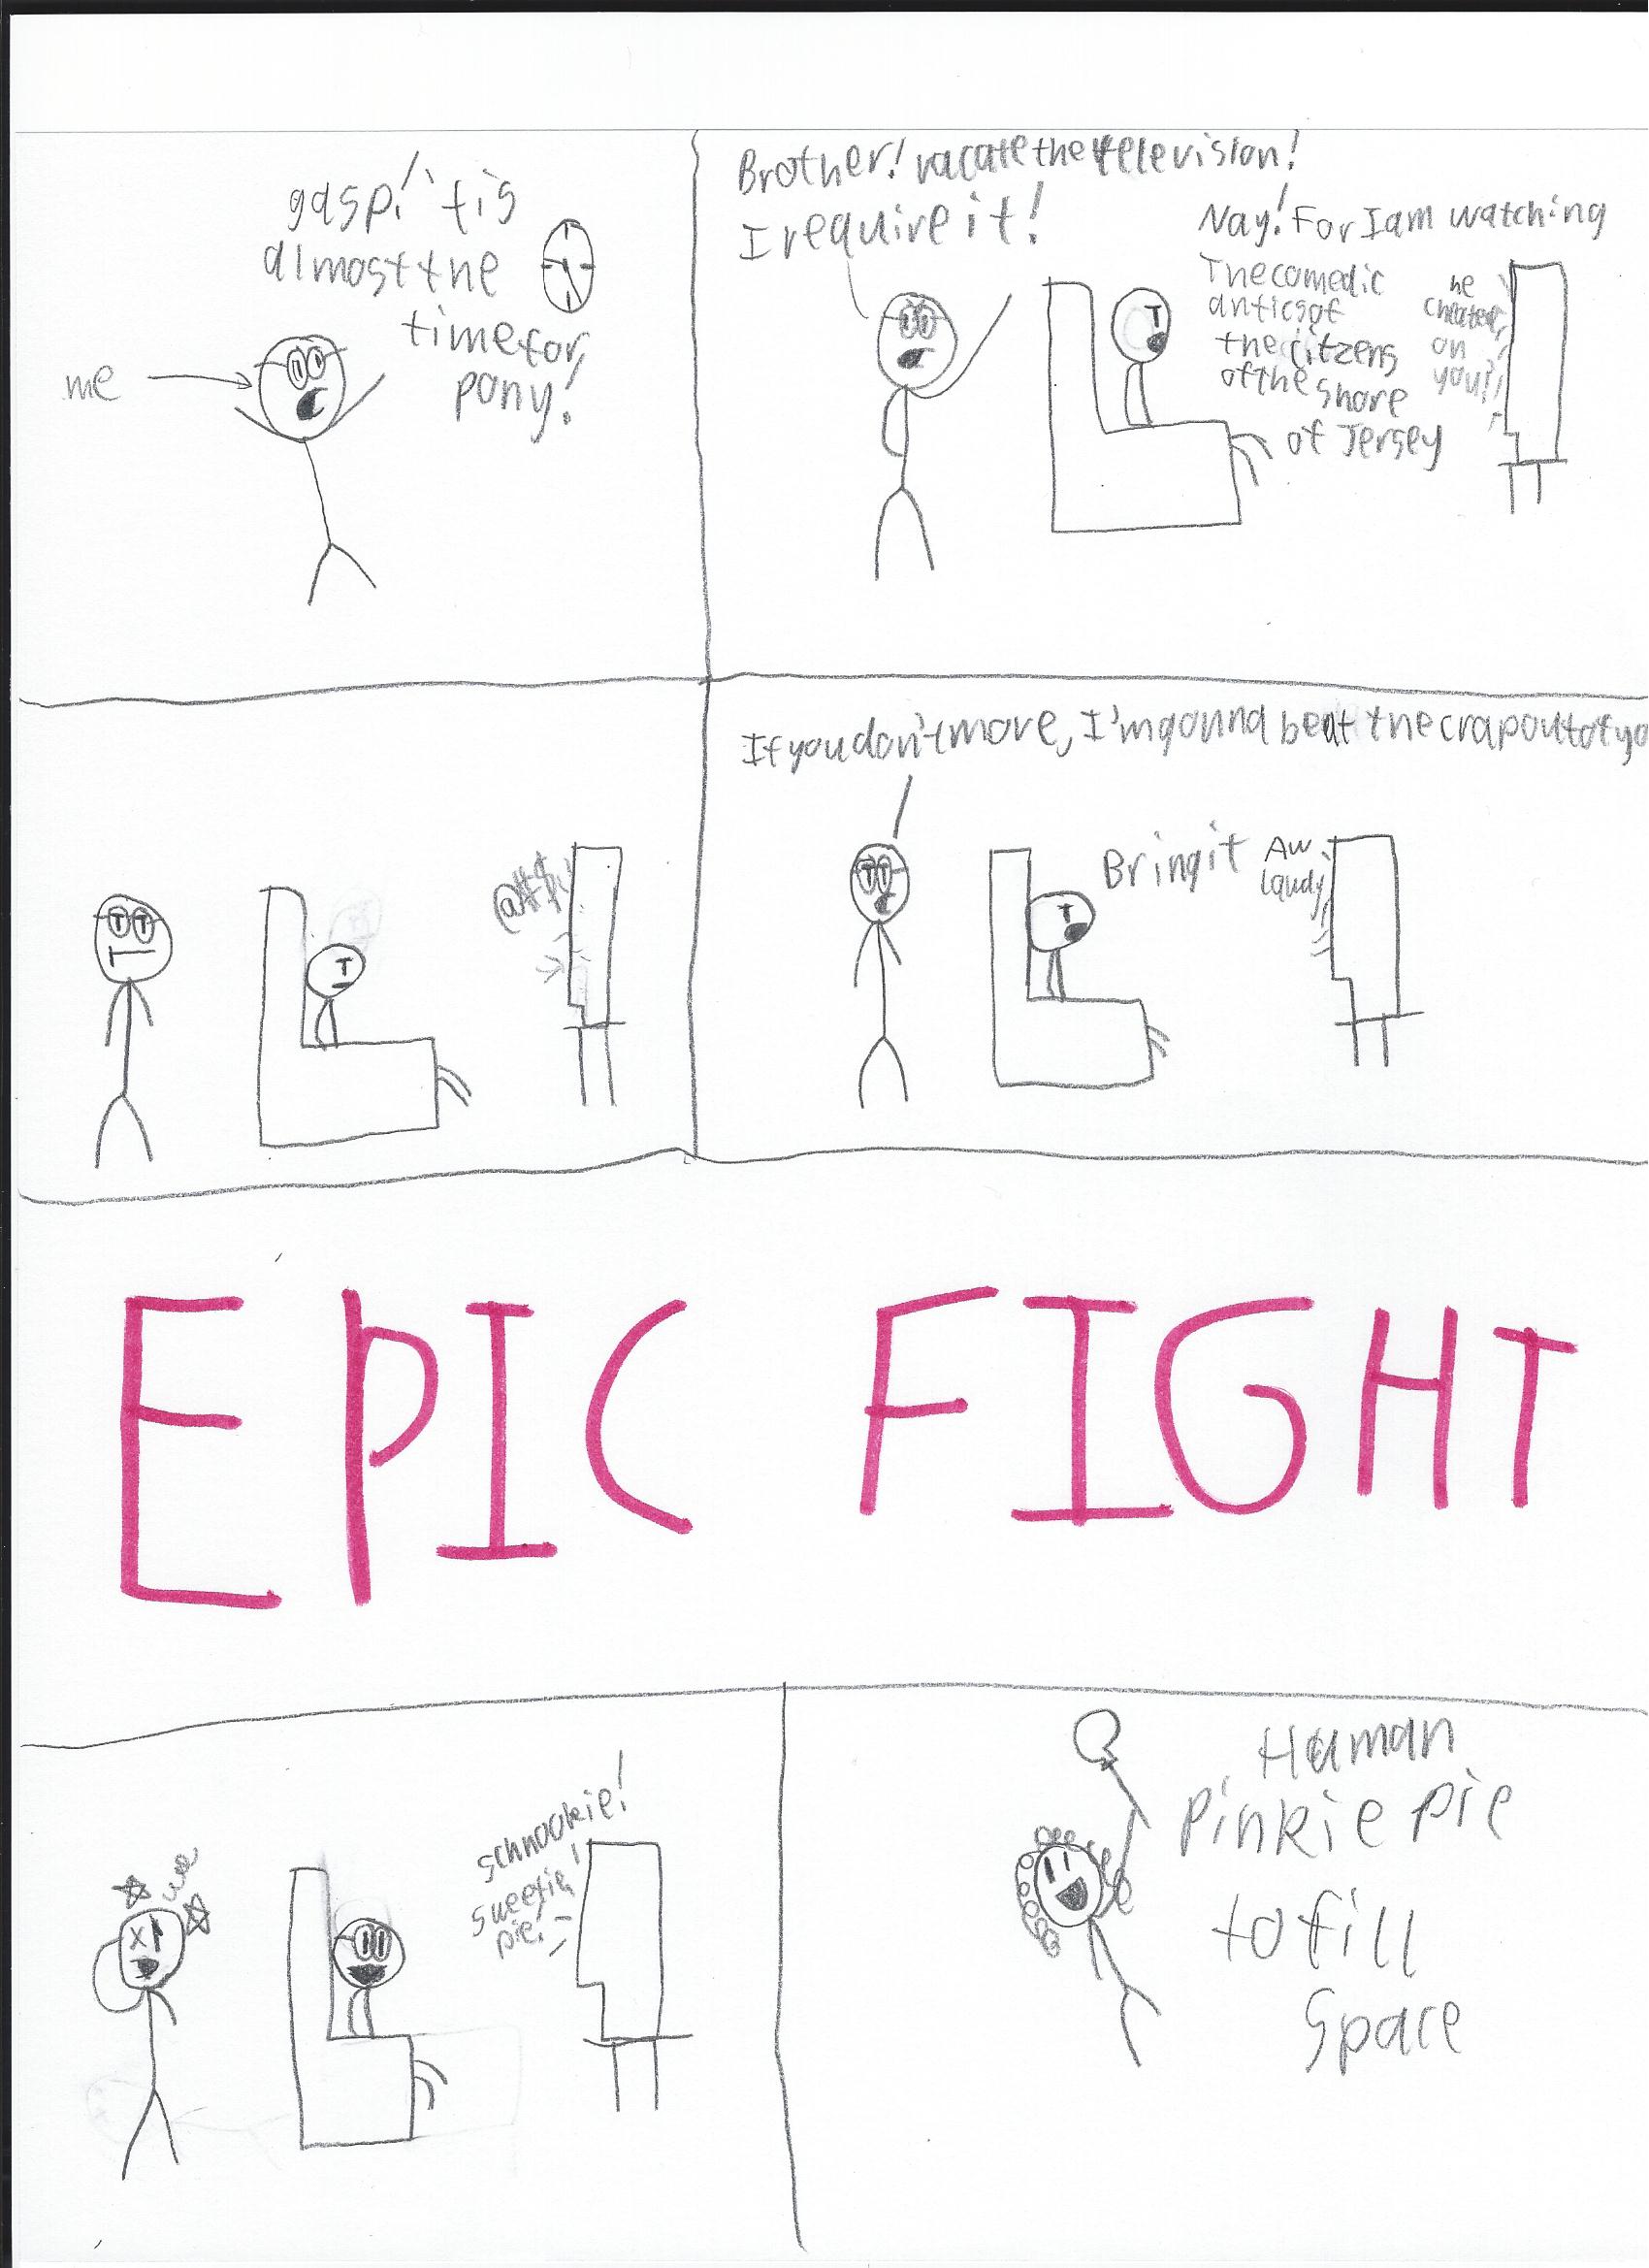 gasp! 'tis
almost the
time for
pony!
me
Brother! vacate the television!
I require it!
Nay! For I am watching
The comedic
antics of
the citzens
of the shore
of Jersey
he
cheated
on
you?!
@#$%!
If you don't move, I'm gonna beat the crap out of yo
Bring it
Aw
laudy
EPIC FIGHT
wee
schnookie!
sweetie!
pie!
Human
pinkie pie
to fill
space